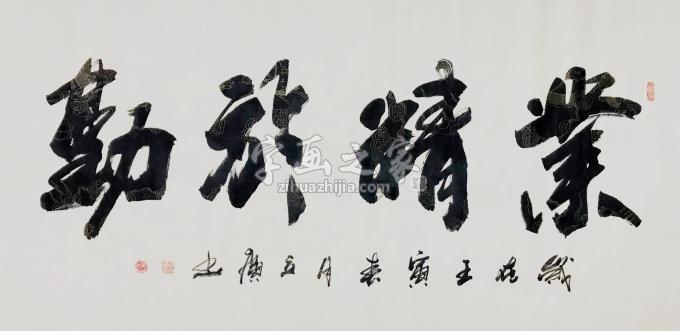 業精於勤
歲在壬寅春月廣书
字画之家
zihuazhijia.com